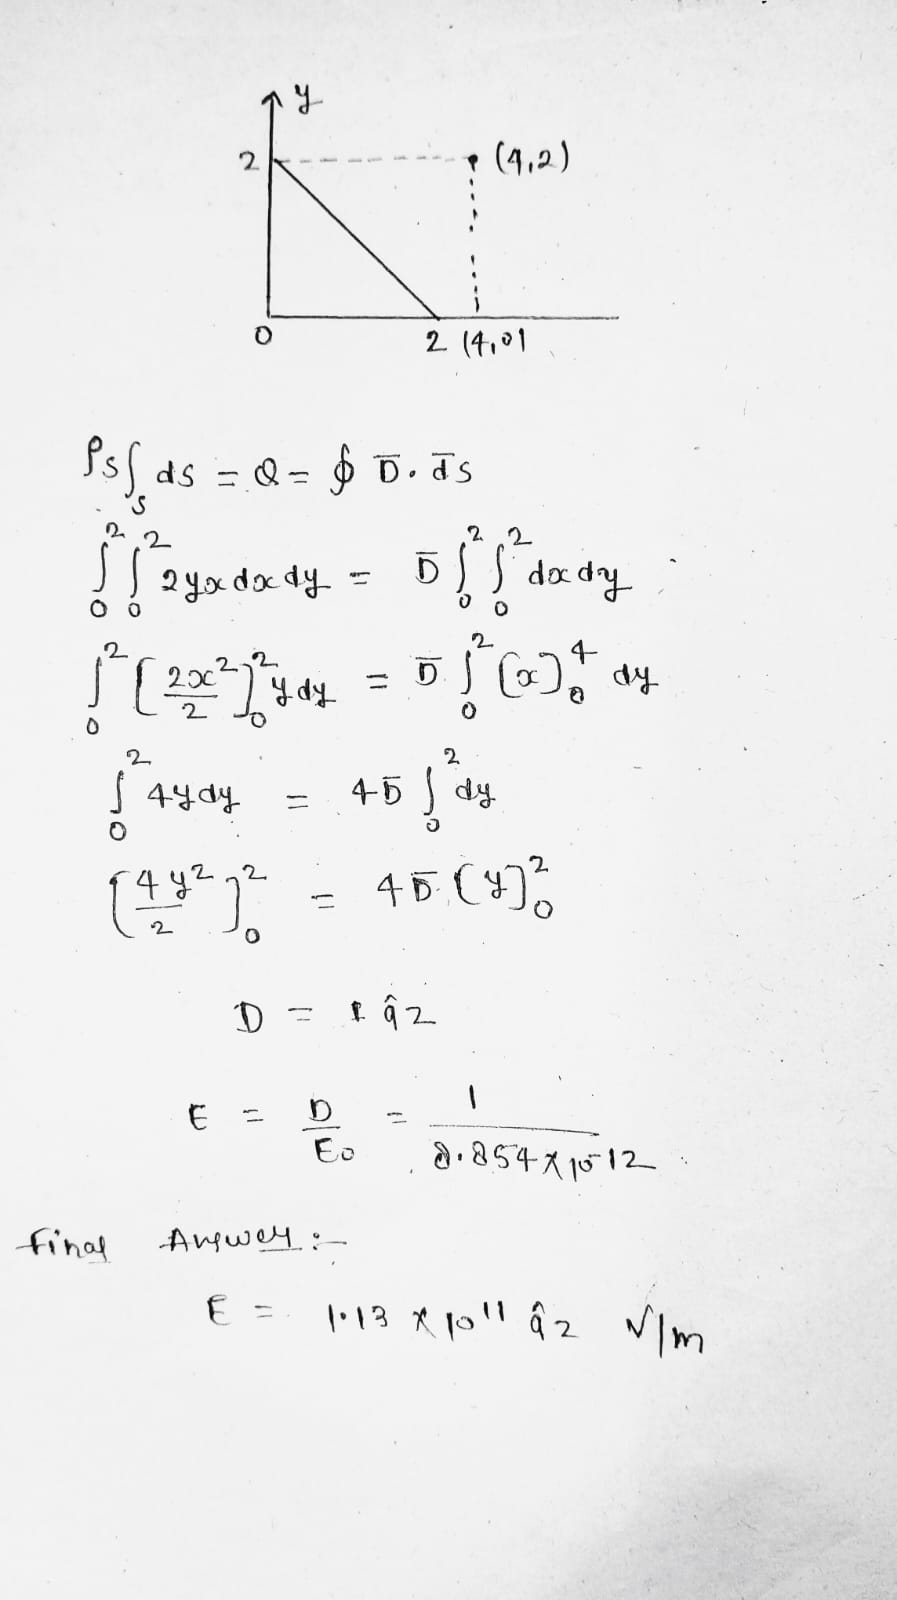 y
2 (4,2)
0 2 (4,0)
ρs∫s ds = Q = ∮ D̄. d̄s
∫₀² ∫₀² 2yx dx dy = D̄ ∫₀² ∫₀² dx dy
∫₀² [2x²/2]₀² y dy = D̄ ∫₀² (x)₀⁴ dy
∫₀² 4y dy = 4D̄ ∫₀² dy
[4y²/2]₀² = 4D̄ (y)₀²
D = 1 âz
E = D/E₀ = 1/8.854 x 10⁻12
final Answer :-
E = 1.13 x 10¹¹ âz V/m